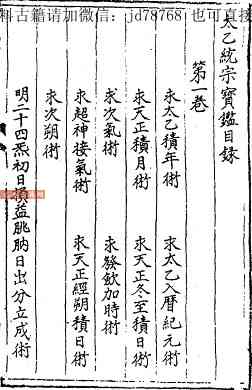 科古籍请加微信：jd78768 也可直接
太乙統宗寶鑑目録
第一卷
求太乙積年術 求太乙入曆紀元術
求天正積月術 求天正冬至積日術
求次氣術 求發歛加時術
求超神接氣術 求天正經朔積日術
求次朔術
明二十四炁初日損益朓朒日出分立成術